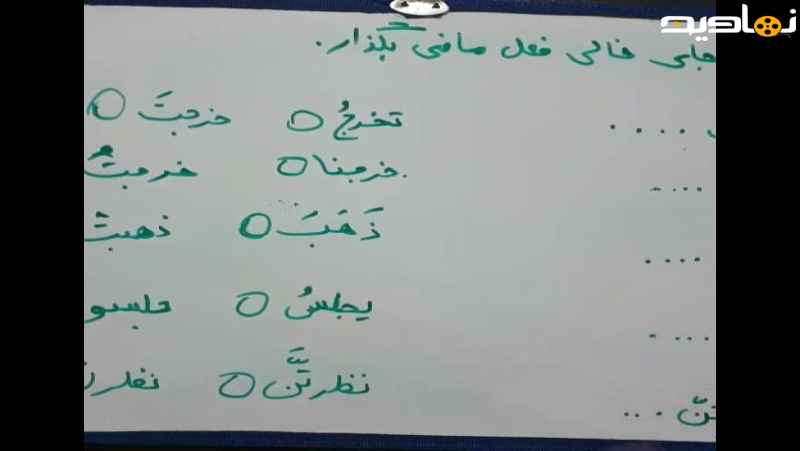 نماديه
جای خالی فعل ماضی بگذار.
.... تخرجُ خرجتَ
.... خرجنا خرجتُ
.... ذَهَبَ ذهبتْ
.... يجلسُ جلسو
تنّ ... نظرتُنَّ نظرن